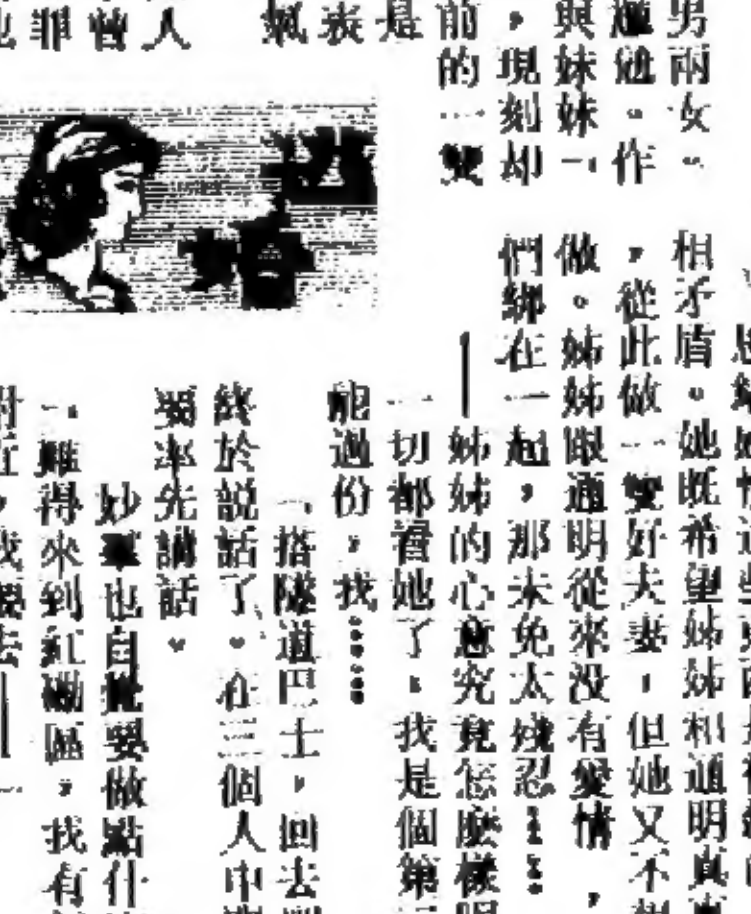 男兩女。
尷尬。作
與妹妹一
，現刻却
前的一雙
是
表
氣
人
曾
罪
也
相矛盾。她既希望姊姊和通明真
，從此做一雙好夫妻，但她又不
做。姊姊跟通明從來没有愛情，
們綁在一起，那未免太殘忍……
——姊姊的心意究竟怎麼樣
一切都看她了，我是個第
能過份，我……
「搭隧道巴士，回去
終於説話了。在三個人中
率先講話。
妙 也自覺要做點什
「難得來到紅磡區，我有
附近，我要去——